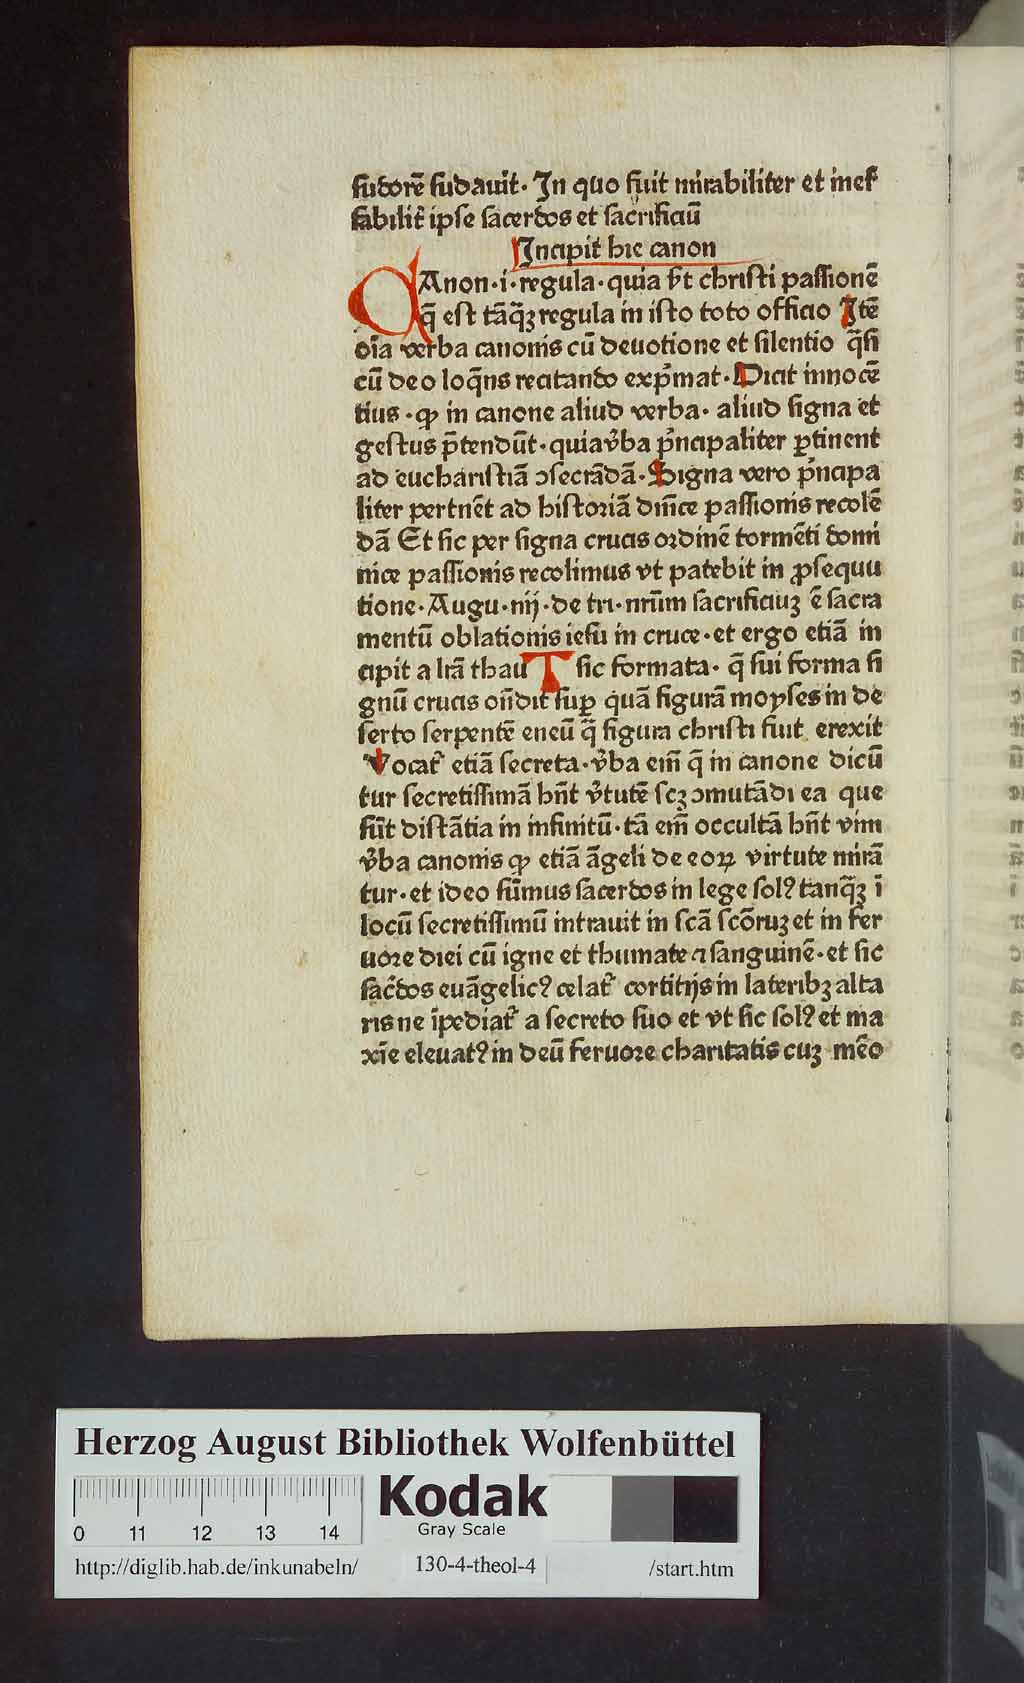 sudorē sudauit. In quo fuit mirabiliter et inef
fabilit̃ ipse sacerdos et sacrificiū
Incipit hic canon
CAnon .i. regula. quia fit christi passionē
q̄ est tāq̃ꝫ regula in isto toto officio Itē
oīa verba canonis cū deuotione et silentio q̄si
cū deo loq̄ns recitando exp̃mat. Dicit innocē
tius. ꝙ in canone aliud verba. aliud signa et
gestus p̄tendūt. quia ṽba p̃ncipaliter ꝑtinent
ad eucharistiā ↄsecrādā. Signa vero p̃ncipa
liter pertinēt ad historiā dn̄ice passionis recolē
dā Et sic per signa crucis ordinē tormēti domi
nice passionis recolimus vt patebit in ꝓsequu
tione. Augu. iiij. de tri. nrūm sacrificiuꝫ ē sacra
mentū oblationis iesu in cruce. et ergo etiā in
cipit a lrā thau T sic formata. q̄ sui forma si
gnū crucis oñdit suꝑ quā figurā moyses in de
serto serpentē eneū q̄ figura christi fuit erexit
Vocat᷑ etiā secreta. ṽba em̄ q̄ in canone dicū
tur secretissimā hn̄t ṽtutē scꝫ ↄmutādi ea que
sūt distātia in infinitū. tā em̄ occultā hn̄t vim
ṽba canonis ꝙ etiā āgeli de eoꝝ virtute mirā
tur. et ideo sūmus sacerdos in lege solꝰ tanq̃ꝫ ī
locū secretissimū intrauit in scā scōruꝫ et in fer
uore diei cū igne et thumate ⁊ sanguinē. et sic
sac̃dos euāgelicꝰ celat᷑ cortitijs in lateribꝫ alta
ris ne īpediat᷑ a secreto suo et vt sic solꝰ et ma
xīe eleuatꝰ in deū feruore charitatis cuꝫ mēo
Herzog August Bibliothek Wolfenbüttel
0 11 12 13 14
Kodak
Gray Scale
http://diglib.hab.de/inkunabeln/ 130-4-theol-4 /start.htm